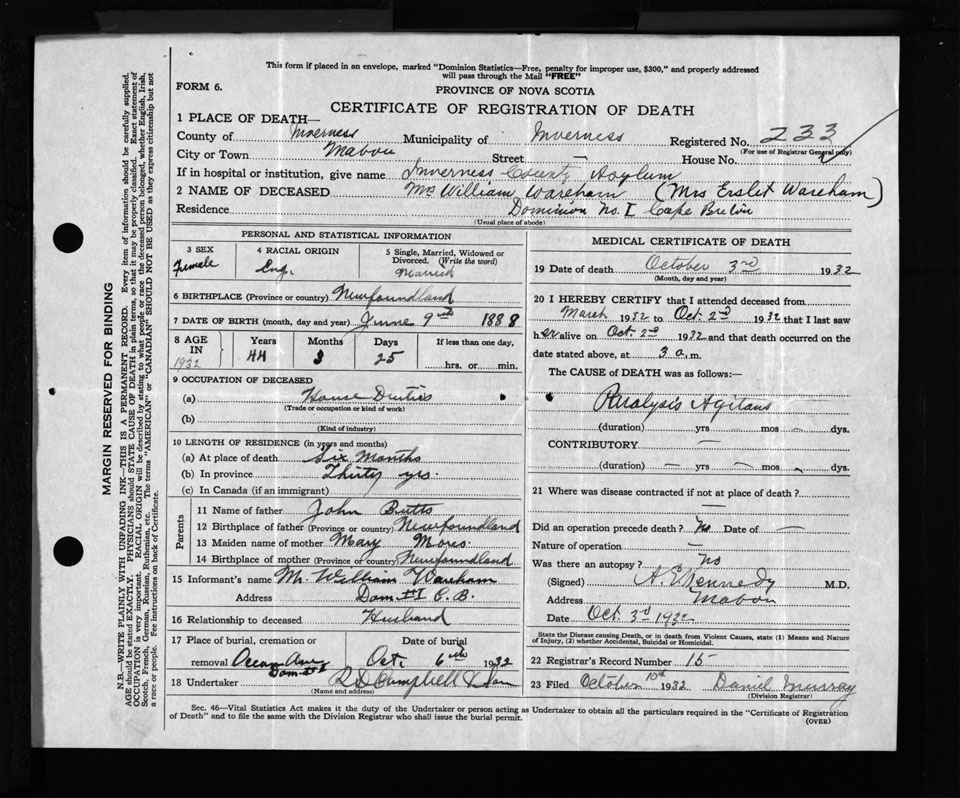 This form if placed in an envelope, marked "Dominion Statistics—Free, penalty for improper use, $300," and properly addressed
will pass through the Mail "FREE"
FORM 6.
PROVINCE OF NOVA SCOTIA
CERTIFICATE OF REGISTRATION OF DEATH
1 PLACE OF DEATH—
County of Inverness Municipality of Inverness Registered No. 233
(For use of Registrar General only)
City or Town Mabou Street — House No.
If in hospital or institution, give name Inverness County Asylum
2 NAME OF DECEASED Mrs William Wareham (Mrs Wareham)
Residence Dominion No. 1 Cape Breton
(Usual place of abode)
PERSONAL AND STATISTICAL INFORMATION
3 SEX Female
4 RACIAL ORIGIN Eng.
5 Single, Married, Widowed or Divorced. (Write the word) Married
6 BIRTHPLACE (Province or country) Newfoundland
7 DATE OF BIRTH (month, day and year) June 9th 1888
8 AGE IN 1932 Years 44 Months 3 Days 25 If less than one day, hrs. or min.
9 OCCUPATION OF DECEASED
(a) House Duties
(Trade or occupation or kind of work)
(b)
(Kind of industry)
10 LENGTH OF RESIDENCE (in years and months)
(a) At place of death Six Months
(b) In province Thirty yrs.
(c) In Canada (if an immigrant)
Parents
11 Name of father John Butts
12 Birthplace of father (Province or country) Newfoundland
13 Maiden name of mother Mary
14 Birthplace of mother (Province or country) Newfoundland
15 Informant's name Mr. William Wareham
Address Dom #1 C. B.
16 Relationship to deceased Husband
17 Place of burial, cremation or Date of burial
removal Ocean Dom #1 Oct. 6th 1932
18 Undertaker Campbell & Son
(Name and address)
MEDICAL CERTIFICATE OF DEATH
19 Date of death October 3rd 1932
(Month, day and year)
20 I HEREBY CERTIFY that I attended deceased from
March 1932 to Oct. 2nd 1932 that I last saw
her alive on Oct. 2nd 1932 and that death occurred on the
date stated above, at 3 a.m.
The CAUSE of DEATH was as follows:—
Paralysis Agitans
(duration) yrs — mos — dys.
CONTRIBUTORY —
(duration) — yrs — mos — dys.
21 Where was disease contracted if not at place of death?
—
Did an operation precede death? No Date of —
Nature of operation —
Was there an autopsy? No
(Signed) Kennedy M.D.
Address Mabou
Date Oct. 3rd 1932
State the Disease causing Death, or in death from Violent Causes, state (1) Means and Nature
of Injury, (2) whether Accidental, Suicidal or Homicidal.
22 Registrar's Record Number 15
23 Filed October 10th 1932 Daniel Murray
(Division Registrar)
Sec. 46—Vital Statistics Act makes it the duty of the Undertaker or person acting as Undertaker to obtain all the particulars required in the "Certificate of Registration
of Death" and to file the same with the Division Registrar who shall issue the burial permit.
(OVER)
MARGIN RESERVED FOR BINDING
N.B.—WRITE PLAINLY WITH UNFADING INK—THIS IS A PERMANENT RECORD. Every item of information should be carefully supplied.
AGE should be stated EXACTLY. PHYSICIANS should STATE CAUSE OF DEATH in plain terms, so that it may be properly classified. Exact statement of
OCCUPATION is very important. RACIAL ORIGIN will be described by stating to what people or race the deceased person belonged, whether English, Irish,
Scotch, French, German, Russian, Ruthenian, etc. The terms "AMERICAN" or "CANADIAN" SHOULD NOT BE USED as they express citizenship but not
a race or people. See instructions on back of Certificate.